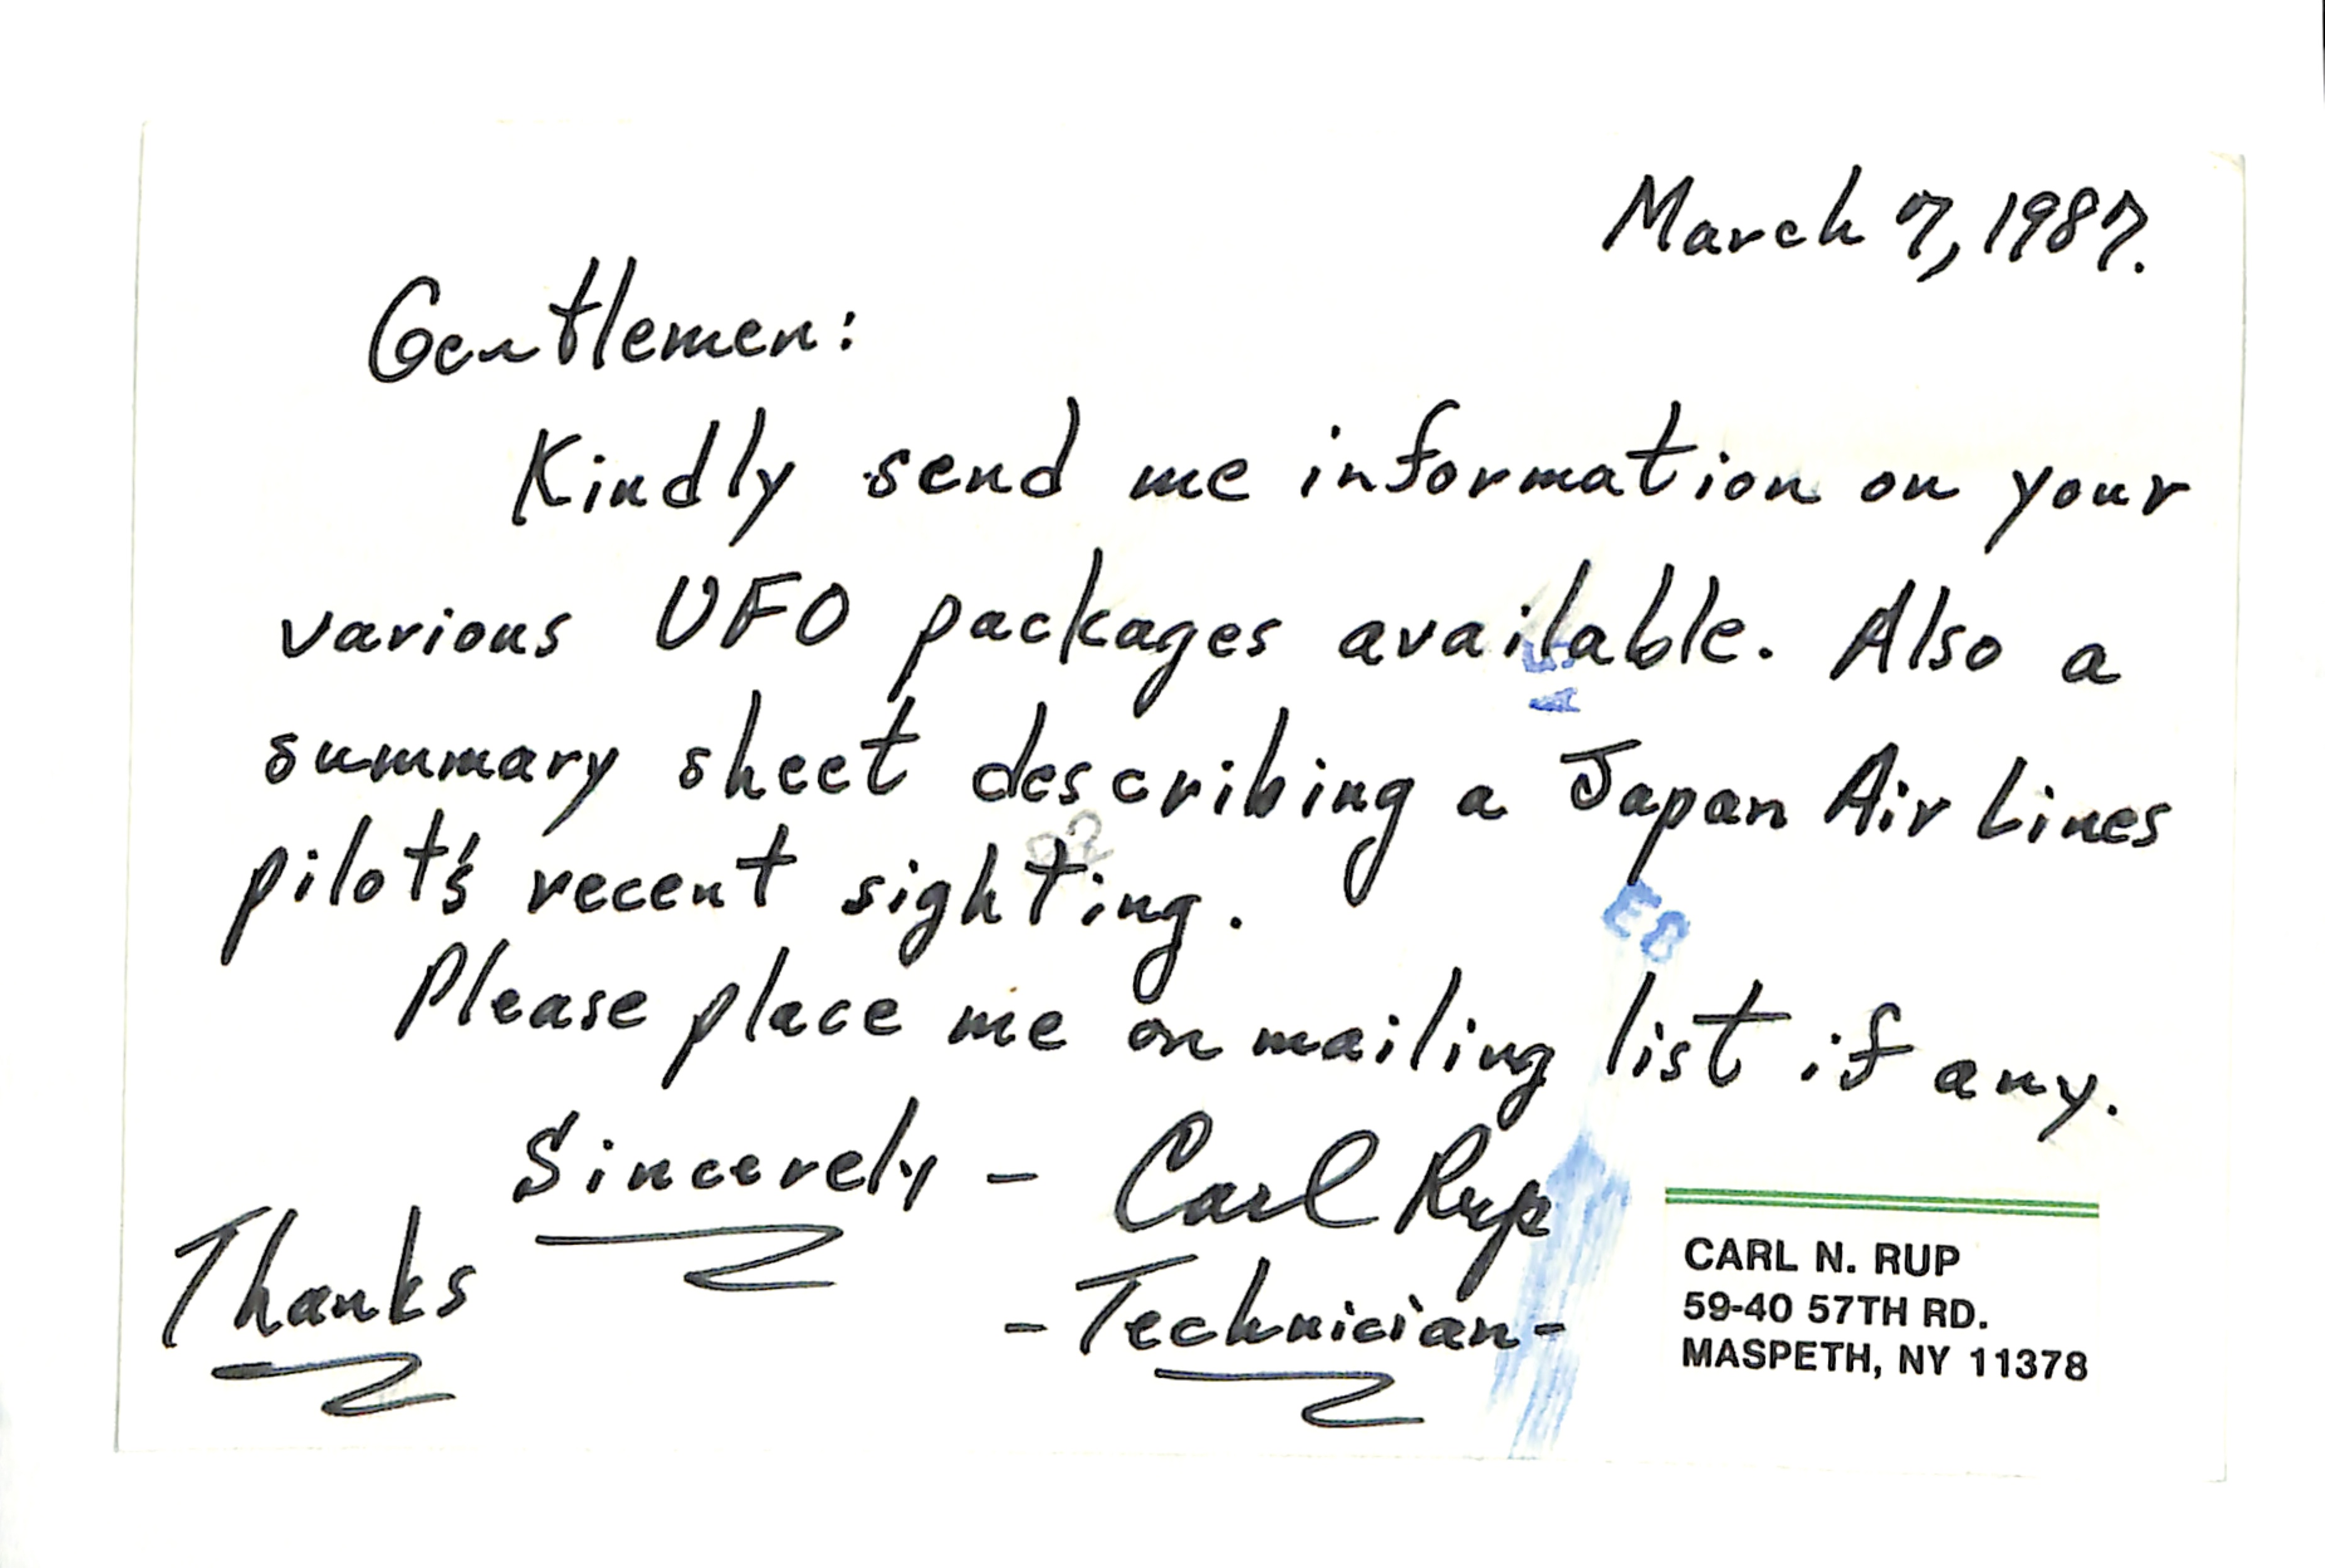 March 7, 1987.
Gentlemen:
Kindly send me information on your
various UFO packages available. Also a
summary sheet describing a Japan Air Lines
pilot's recent sighting.
Please place me on mailing list if any.
Sincerely - Carl Rup
Thanks
- Technician -
CARL N. RUP
59-40 57TH RD.
MASPETH, NY 11378